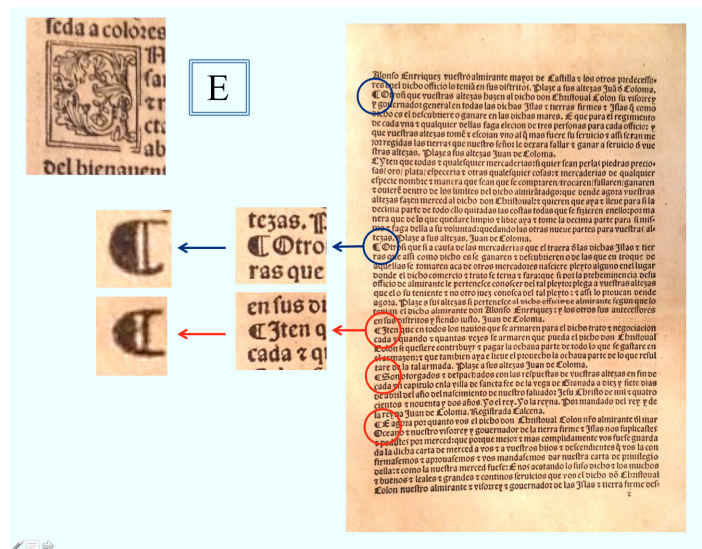 feda a colores
del bienauent
E
tezas. P
¶ Otro
ras que
en sus di
¶ Iten q
cada z q
Alonso Enrriquez vuestro almirante mayor de Castilla z los otros predecesso-
res en el dicho officio lo tenian en sus distritos. Plaze a sus altezas Juã d̃ Coloma.
¶ Otrosi que vuestras altezas hazen al dicho don Christoual Colon su visorrey
y gouernador general en todas las dichas Islas z tierras firmes z Islas q̃ como
dicho es el descubriere o ganare en las dichas mares. E que para el regimiento
de cada vna z qualquier dellas faga elecion de tres personas para cada officio: y
que vuestras altezas tomẽ z escojan vno al q̃ mas fuere su seruicio z assi seran me
jor regidas las tierras que nuestro señor le dexara fallar z ganar a seruicio d̃ vue
stras altezas. Plaze a sus altezas Juan de Coloma.
¶ Yten que todas z qualesquier mercaderias: si quier sean perlas piedras precio-
sas/ oro/ plata/ especeria z otras qualesquier cosas: z mercaderias de qualquier
especie nombre z manera que sean que se compraren/ trocaren/ fallaren/ ganaren
z ouierẽ dentro de los limites del dicho almirãtadgo: que dende agora vuestras
altezas fazen merced al dicho don Christoual: z quieren que aya z lieue para si la
decima parte de todo ello quitadas las costas todas que se fizieren en ello: por ma
nera que de lo que quedare limpio z libre aya z tome la decima parte para si mis-
mo z faga della a su voluntad: quedando las otras nueue partes para vuestras al-
tezas. Plaze a sus altezas. Juan de Coloma.
¶ Otrosi que si a causa de las mercaderias que el traera d̃ las dichas Islas z tier
ras que assi como dicho es se ganaren z descubrieren o de las que en troque de
aquellas se tomaren aca de otros mercadores nasciere pleyto alguno en el lugar
donde el dicho comercio z trato se terna z fara: que si por la prebeminencia de su
officio de almirante le pertenesce conoscer del tal pleyto: plega a vuestras altezas
que el o su teniente z no otro juez conosca del tal pleyto: z assi lo prouean dende
agora. Plaze a sus altezas si pertenesce al dicho officio de almirante segun que lo
tenian el dicho almirante don Alonso Enrriquez: y los otros sus antecessores
en sus distritos y siendo justo. Juan de Coloma.
¶ Iten que en todos los nauios que se armaren para el dicho trato z negociacion
cada z quando z quantas vezes se armaren que pueda el dicho don Christoual
Colon si quesiere contribuyr z pagar la ochaua parte de todo lo que se gastare en
el armazon: z que tambien aya e lieue el prouecho la ochaua parte de lo que resul
tare de la tal armada. Plaze a sus altezas Juan de Coloma.
¶ Son otorgados z despachados con las respuestas de vuestras altezas en fin de
cada vn capitulo en la villa de sancta fee de la vega de Granada a diez y siete dias
de abril del año del nascimiento de nuestro saluador Jesu Christo de mil z quatro
cientos z nouenta y dos años. Yo el rey. Yo la reyna. Por mandado del rey y de
la reyna Juan de Coloma. Registrada Calcena.
¶ E agora por quanto vos el dicho don Christoual Colon nr̃o almirante d̃l mar
Oceano z nuestro visorrey y gouernador de la tierra firme z Islas nos suplicastes
z pedistes por merced: que porque mejor z mas complidamente vos fuese guarda
da la dicha carta de merced a vos z a vuestros hijos z descendientes q̃ vos la con
firmasemos z aprouasemos z vos mandasemos dar nuestra carta de priuilegio
della: z como la nuestra merced fuese: E nos acatando lo suso dicho z los muchos
z buenos z leales z grandes z continos seruicios que vos el dicho dõ Christoual
Colon nuestro almirante z visorrey z gouernador de las Islas z tierra firme des-
z